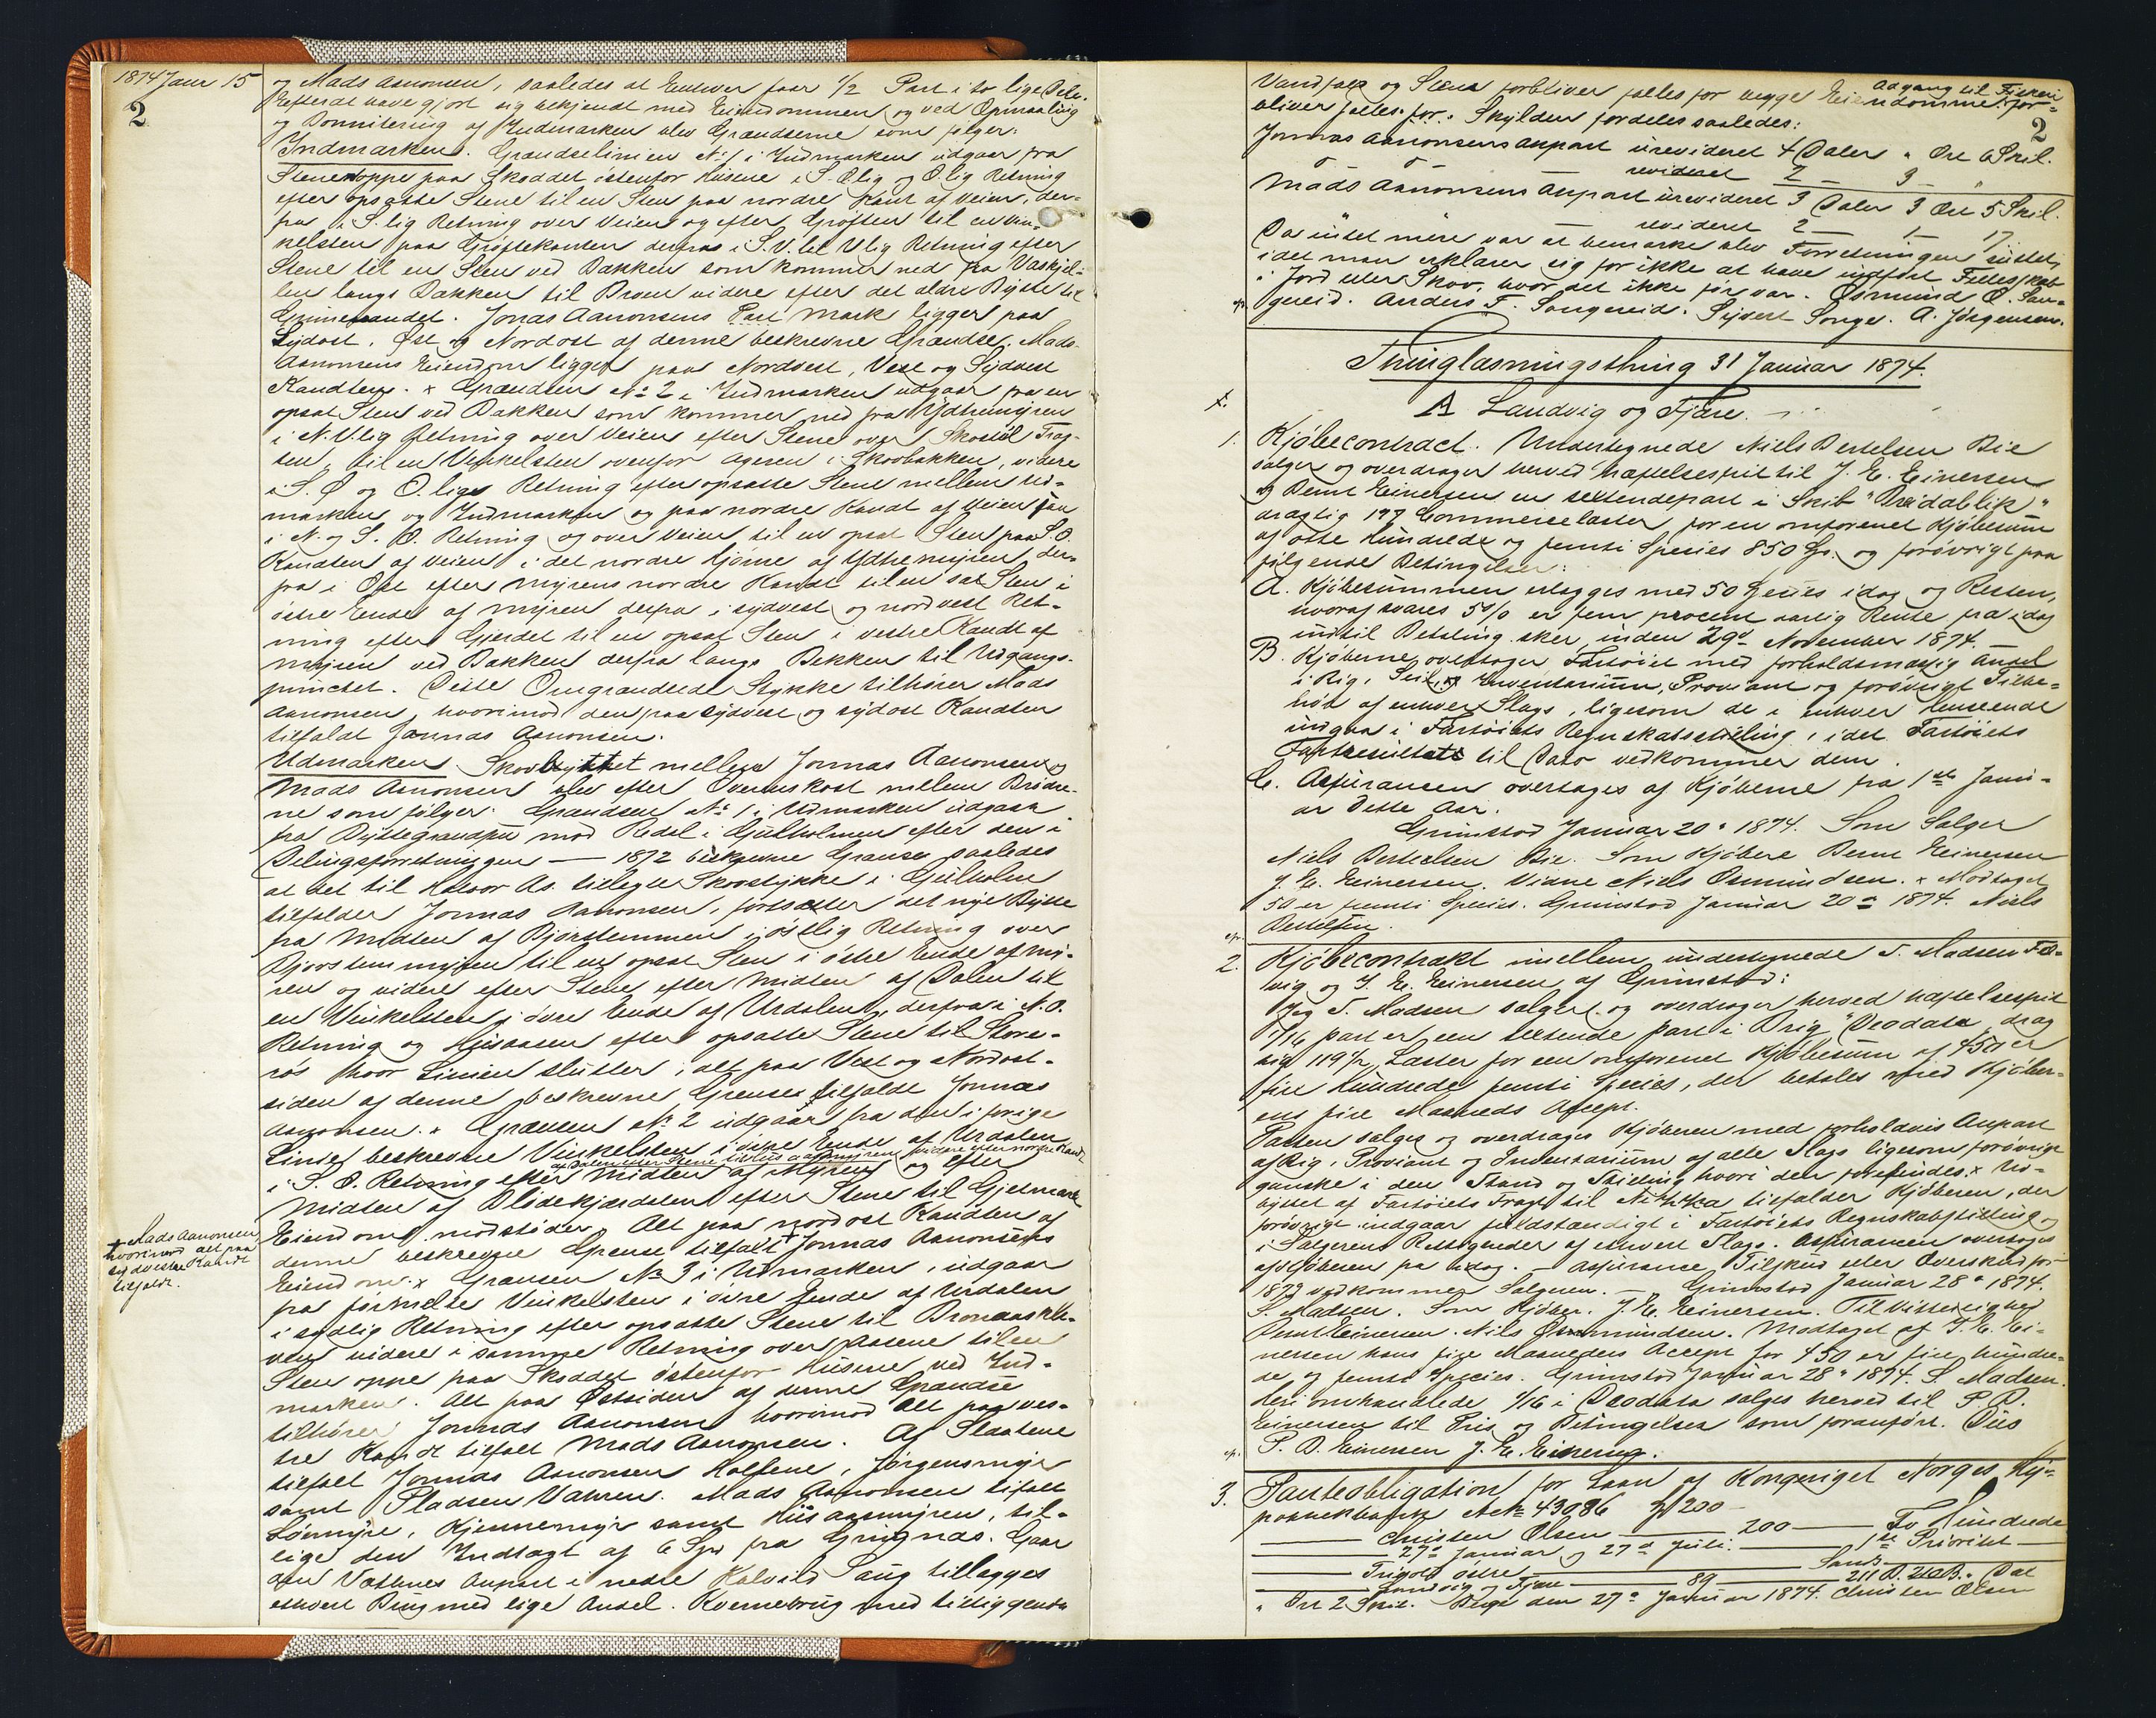 1874 Janr 15
2
og Mads Aanonsen, saaledes at Enhver faar 1/2 Part i to lige Dele.
Efterat have gjort sig bekjendt med Eiendommen og ved Opmaaling
og Bonnitering af Indmarken blev Grændserne som følger:
Indmarken. Grændselinien No 1 i Indmarken udgaar fra
Stene oppe paa Skoddet østenfor Husene i S.Ø.lig og Ø.lig Retning
efter opsatte Stene til en Sten paa nordre Kant af Veien, der-
fra i S.lig Retning over Veien og efter Grøften til en Vin-
kelsten paa Grøftekanten derfra i S.V. til V.lig Retning efter
Stene til en Sten ved Bakken som kommer ned fra Vaskjel-
len langs Bækken til Broen videre efter det ældre Bytte til
Jonas Aanonsens Part Mark ligger paa
Sydost, Øst og Nordost af denne beskrevne Grændse, Mads
Aanonsens Eiendom ligger paa Nordvest, Vest og Sydvest
Kandten. x Grændsen No 2 i Indmarken udgaar fra en
opsat Sten ved Bakken som kommer ned fra Ydtremyren
i N.V.lig Retning over Veien efter Stene over
til en Vinkelsten ovenfor Ageren i Skovbakken, videre
i S.Ø og Ø.lige Retning efter opsatte Stene mellem Ud-
marken og Indmarken og paa nordre Kandt af Veien
i N. og S.Ø. Retning og over Veien til en opsat Sten paa S.Ø.
Kandten af Veien i det nordre Hjørne af Ydtremyren, der-
fra i Øst efter Myrens nordre Kandt til en sat Sten i
østre Ende af Myren derfra i sydvest og nordvest Ret-
ning efter Gjerdet til en opsat Sten i vestre Kandt af
Myren ved Bakken derfra langs Bekken til Udgangs-
punctet. Dette Omgrændsede Stykke tilhører Mads
Aanonsen, hvorimod den paa sydvest og sydost Kandten
tilfaldt Jonnas Aanonsen.
Udmarken. Skovbyttet mellem Jonnas Aanonsen og
Mads Aanonsen blev efter Overenskost mellem Brødre-
ne som følger: Grændsen No 1 i Udmarken udgaar
fra Byttegrændsen mod Redal i Gulholmen efter den i
Delingsforretningen — 1872 beskrevne Grænse saaledes
at det til Halvor As. tillegte Skovstykke i Gulholmen
tilfalder Jonnas Aanonsen, fortsætter det nye Bytte
fra Midten af Bjørstemmen i østlig Retning over
Bjorstemmyren til en opsat Sten i østre Ende af My-
ren og videre efter Stene efter Midten af Dalen til
en Vinkelsten i øvre Ende af Urdalen, derfra i N.O.
Retning og Husaasen efter opsatte Stene til Store-
røs hvor Linien slutter, alt paa Vest og Nordost-
siden af denne beskrevne Grense tilfaldt Jonnas
Aanonsen. x Grænsen No 2 udgaar fra den i forige
Linie beskrevne Vinkelsten i øvre Ende af Urdalen
i S.O. Retning efter Midten af Myren og efter
Midten af Blidekjærdalen efter Stene til Gjetmark
Eiendoms modstøder, Alt paa nordost Kandten af
denne beskrevne Grense tilfalt + Jonnas Aanonsens
Eiendom. x Grænsen No 3 i Udmarken, udgaar
fra formelte Vinkelsten i øvre Ende af Urdalen
i sydlig Retning efter opsatte Stene til Bronaaskle-
ven videre i samme Retning over Aasene til en
Sten oppe paa Skoddet østenfor Husene ved Ind-
marken. Alt paa Østsiden af denne Grændse
tilhører Jonnas Aanonsen hvorimod Alt paa ves-
tre Kandt tilfalt Mads Aanonsen. Af Slaatene
tilfalt Jonnas Aanonsen Kalfene, Jørgensmyr
samt Pladsen Vahren. Mads Aanonsen tilfalt
Lønmyr, Kjennemyr samt Husaasmyren, til-
lige den Indtægt af 6 Spd fra Grugnæs. Gaar
den Vatnes Anpart i nedre Kalvild Saug tillægges
ethvert Brug med lige Andel. Kvernebrug med tilliggende
+ Mads Aanonsen,
hvorimod alt paa
sydvestre Kandt
tilfaldt.
Vandfald og Stena forbliver fælles for begge Eiendomme. Adgang til Fiskeri for-
bliver fælles for. Skylden fordeles saaledes:
2
Jonnas Aanonsens Anpart urevideret 4 Daler " Ort 6 Skil.
revideret 2 — 3 — "
Mads Aanonsens Anpart urevideret 3 Daler 3 Ort 5 Skil.
revideret 2 — 1 — 17
Da intet mere var at bemærke blev Forretningen sluttet,
idet man erklærer sig for ikke at have indført Fellesskab
i Jord eller Skov, hvor det ikke før var. Osmund O. Son-
gereid. Anders F. Songereid. Sivert Songe. A. Jørgensen.
Thinglæsningsthing 31 Januar 1874.
A. Landvig og Fjære.
1. Kjøbecontract. Undertegnede Niels Bertelsen Bie
sælger og overdrager herved hæftelsesfrit til J. E. Einersen
og Bernt Einersen en sextendepart i Skib "Breidablik",
drægtig 197 Commercelæster, for en omforenet Kjøbesum
af otte Hundrede og femti Species 850 Sp. og forøvrigt paa
følgende Betingelser:
A. Kjøbesummen erlægges med 50 Species idag og Resten,
hvoraf svares 5% er fem procent aarlig Rente fra idag
indtil Betaling sker, inden 29d November 1874.
B. Kjøberne overtager Fartøiet med forholdsmæssig Andel
i Rig, Seil, Inventarium, Proviant og forøvrigt Tilbe-
hør af enhver Slags, ligesom de i enhver Henseende
indgaa i Fartøiets Regnskabsstilling, idet Fartøiets
Fartresultat til Dato vedkommer dem.
C. Assurancen overtages af Kjøberne fra 1ste Janu-
ar dette Aar.
Grimstad Januar 20d 1874. Som Sælger
Niels Bertelsen Bie. Som Kjøbere Bernt Einersen
J. E. Einersen. Vidne Niels Osmundsen. x Modtaget
50 er femti Species. Grimstad Januar 20d 1874. Niels
Bertelsen.
2. Kjøbecontrakt imellem undertegnede S. Madsen Fæ-
vig og J. E. Einersen af Grimstad:
Jeg S. Madsen sælger og overdrager herved hæftelsesfrit
1/16 part er een sextende part i Brig "Deodata", dræg
tig 119 1/2 Læster for een omforenet Kjøbesum af 450 er
fire Hundrede femti Species, der betales med Kjøber-
ens fire Maaneds Accept.
Parten sælges og overdrages Kjøberen med forholdsvis Anpart
af Rig, Proviant og Inventarium af alle Slags ligesom forøvrigt
ganske i den Stand og Stilling hvori den forefindes. x Ud-
byttet af Fartøiets Fragt til Nikka tilfalder Kjøberen, der
forøvrigt indgaar fuldstændigt i Fartøiets Regnskabstilling og
i Sælgerens Rettigheder af ethvert Slags. Assurancen overtages
af Kjøberen fra idag. — Assurance, Tilskud eller Overskud for
1873 vedkommer Sælgeren. — Grimstad Januar 28d 1874.
S. Madsen. Som Kjøber. J. E. Einersen. Til Vitterlighed
Bernt Einersen. Nils Osmundsen. Modtaget af J. E. Ei-
nersen hans fire Maaneders Accept for 450 er fire hundre-
de og femti Species. Grimstad Januar 28d 1874. S Madsen.
Heri omhandlede 1/16 i Deodata sælges herved til P. B.
Einersen til Pris og Betingelser som foranført. Dito
P. B. Einersen J. E. Einersen.
3. Panteobligation for Laan af Kongeriget Norges Hy-
pothekbank Act No 43086 200
Christen Olsen — 200 — To Hundrede
27d Januar og 27d Juli. — 1ste Prioritet —
Trivold østre —
Landvig og Fjære — 89 — 211 B. 2 Dal
" Ort 2 Skil. Bige den 27d Januar 1874. Christen Olsen